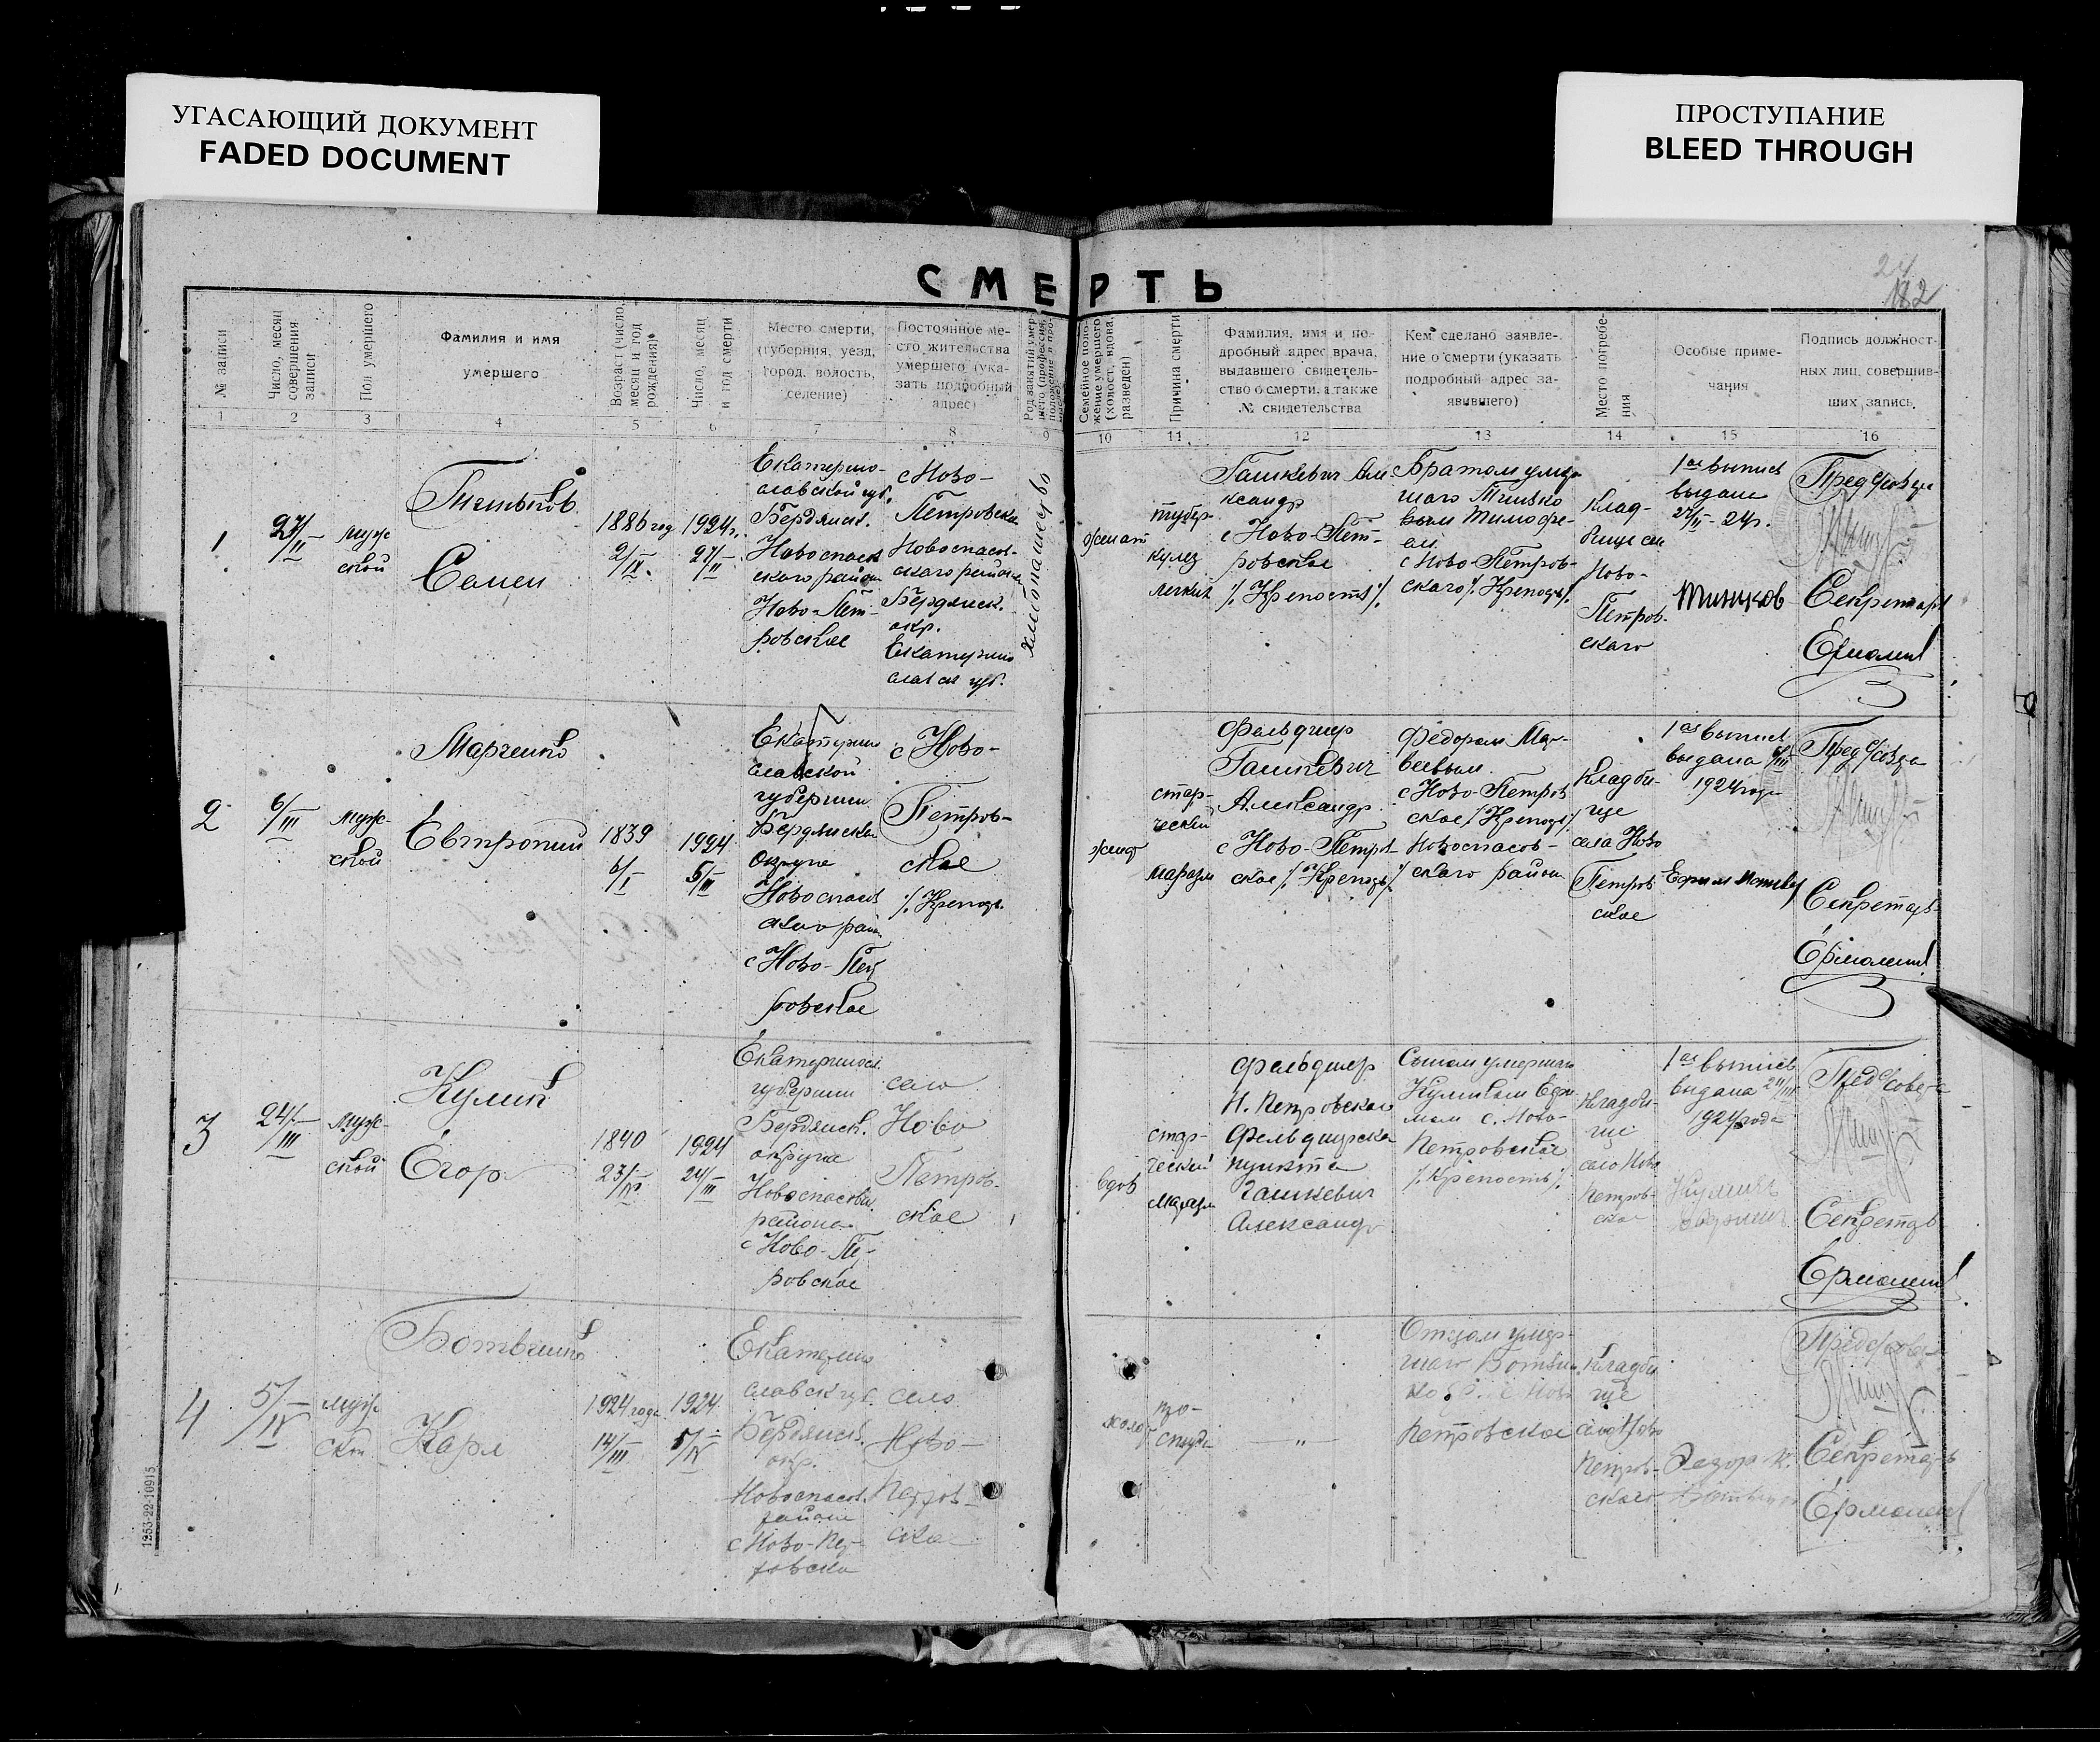 УГАСАЮЩИЙ ДОКУМЕНТ
FADED DOCUMENT
ПРОСТУПАНИЕ
BLEED THROUGH
СМЕРТЬ
24
182
№ записи
Число, месяц
совершения
записи
Пол умершего
Фамилия и имя
умершего
Возраст (число,
месяц и год
рождения)
Число, месяц
и год смерти
Место смерти,
(губерния, уезд,
город, волость,
селение)
Постоянное ме-
сто жительства
умершего (ука-
зать подробный
адрес)
Род занятий умер-
шего (профессия,
положение в про-
мысле)
Семейное поло-
жение умершего
(холост, вдова,
разведен)
Причина смерти
Фамилия, имя и по-
дробный адрес врача,
выдавшего свидетель-
ство о смерти, а также
№ свидетельства
Кем сделано заявле-
ние о смерти (указать
подробный адрес за-
явившего)
Место погребе-
ния
Особые приме-
чания
Подпись должност-
ных лиц, совершив-
ших запись
1 2 3 4 5 6 7 8 9 10 11 12 13 14 15 16
1
27/II
муж
ской
Семен
1886 год
2/IV.
1924г.
27/II
Екатерино-
славской губ.
Бердянск.
Новоспасов
ского района
Ново-Пет-
ровское
с Ново-
Петровска
Новоспасов-
ского района
Бердянск.
окр.
Екатерино
слав ск губ.
хлебопашество
женат
тубер-
кулез
легких
Гашкевич Але-
ксандр
с Ново-Пет-
ровское
/. Крепость /.
Братом умер
шаго
Тимофе-
ем
с Ново-Петров-
ского /. Крепость /.
Клад-
бище села
Ново-
Петров-
скаго
1ая выпись
выдана
27/II-24г.
Пред С/совета
Секретарь
Ермолин
2
6/III
муж-
ской
Марченко
Евтропий
1839
6/I
1924
5/III
Екатерино
славской
губернии
Бердянской
округа
Новоспасов
ского район
с Ново-Пет
ровское
с Ново-
Петров-
ское
/. Крепость
женат
стар-
ческий
маразм
Фельдшер
Гашкевич
Александр
с Ново-Петров
ское /. Крепость /.
Федором Мар-
с Ново-Петров
ское /Крепость/
Новоспасов-
ского район
Кладби-
ще
села Ново
Петров
ское
1ая выпись
выдана 6/III
1924 года
Пред С/совета
Секретарь
Ермолин
3
24/III
муж-
ской
Кулик
Егор
1840
23/IV
1924
24/III
Екатериносл.
губернии
Бердянск.
округа
Новоспасовск.
района
с Ново-Пе-
ровское
село
Ново
Петров-
ское
вдов
стар-
ческий
маразм
Фельдшер
Н. Петровского
Фельдшерска
пункта
Гашкевич
Александр
Сыном умершаго
Куликом Ефи
мом с. Ново-
Петровское
/. Крепость /.
Кладби-
ще
село Ново
Петров-
ское
1ая выпись
выдана 24/III
1924 года
Пред С/совета
Секретарь
Ермолин
4
5/IV
муж
ской
Карл
1924 года
14/III
1924
5/IV
Екатерино
славск губ.
Бердянск.
окр.
Новоспасов.
района
с Ново-Пет-
ровско
село
Ново-
Петров-
ско
холост
— „ —
Отцом умер-
шаго
Петровское
Кладби
ще
села Ново
Петров-
скаго
Пред С/совета
Секретарь
Ермолин
1253-22-10915